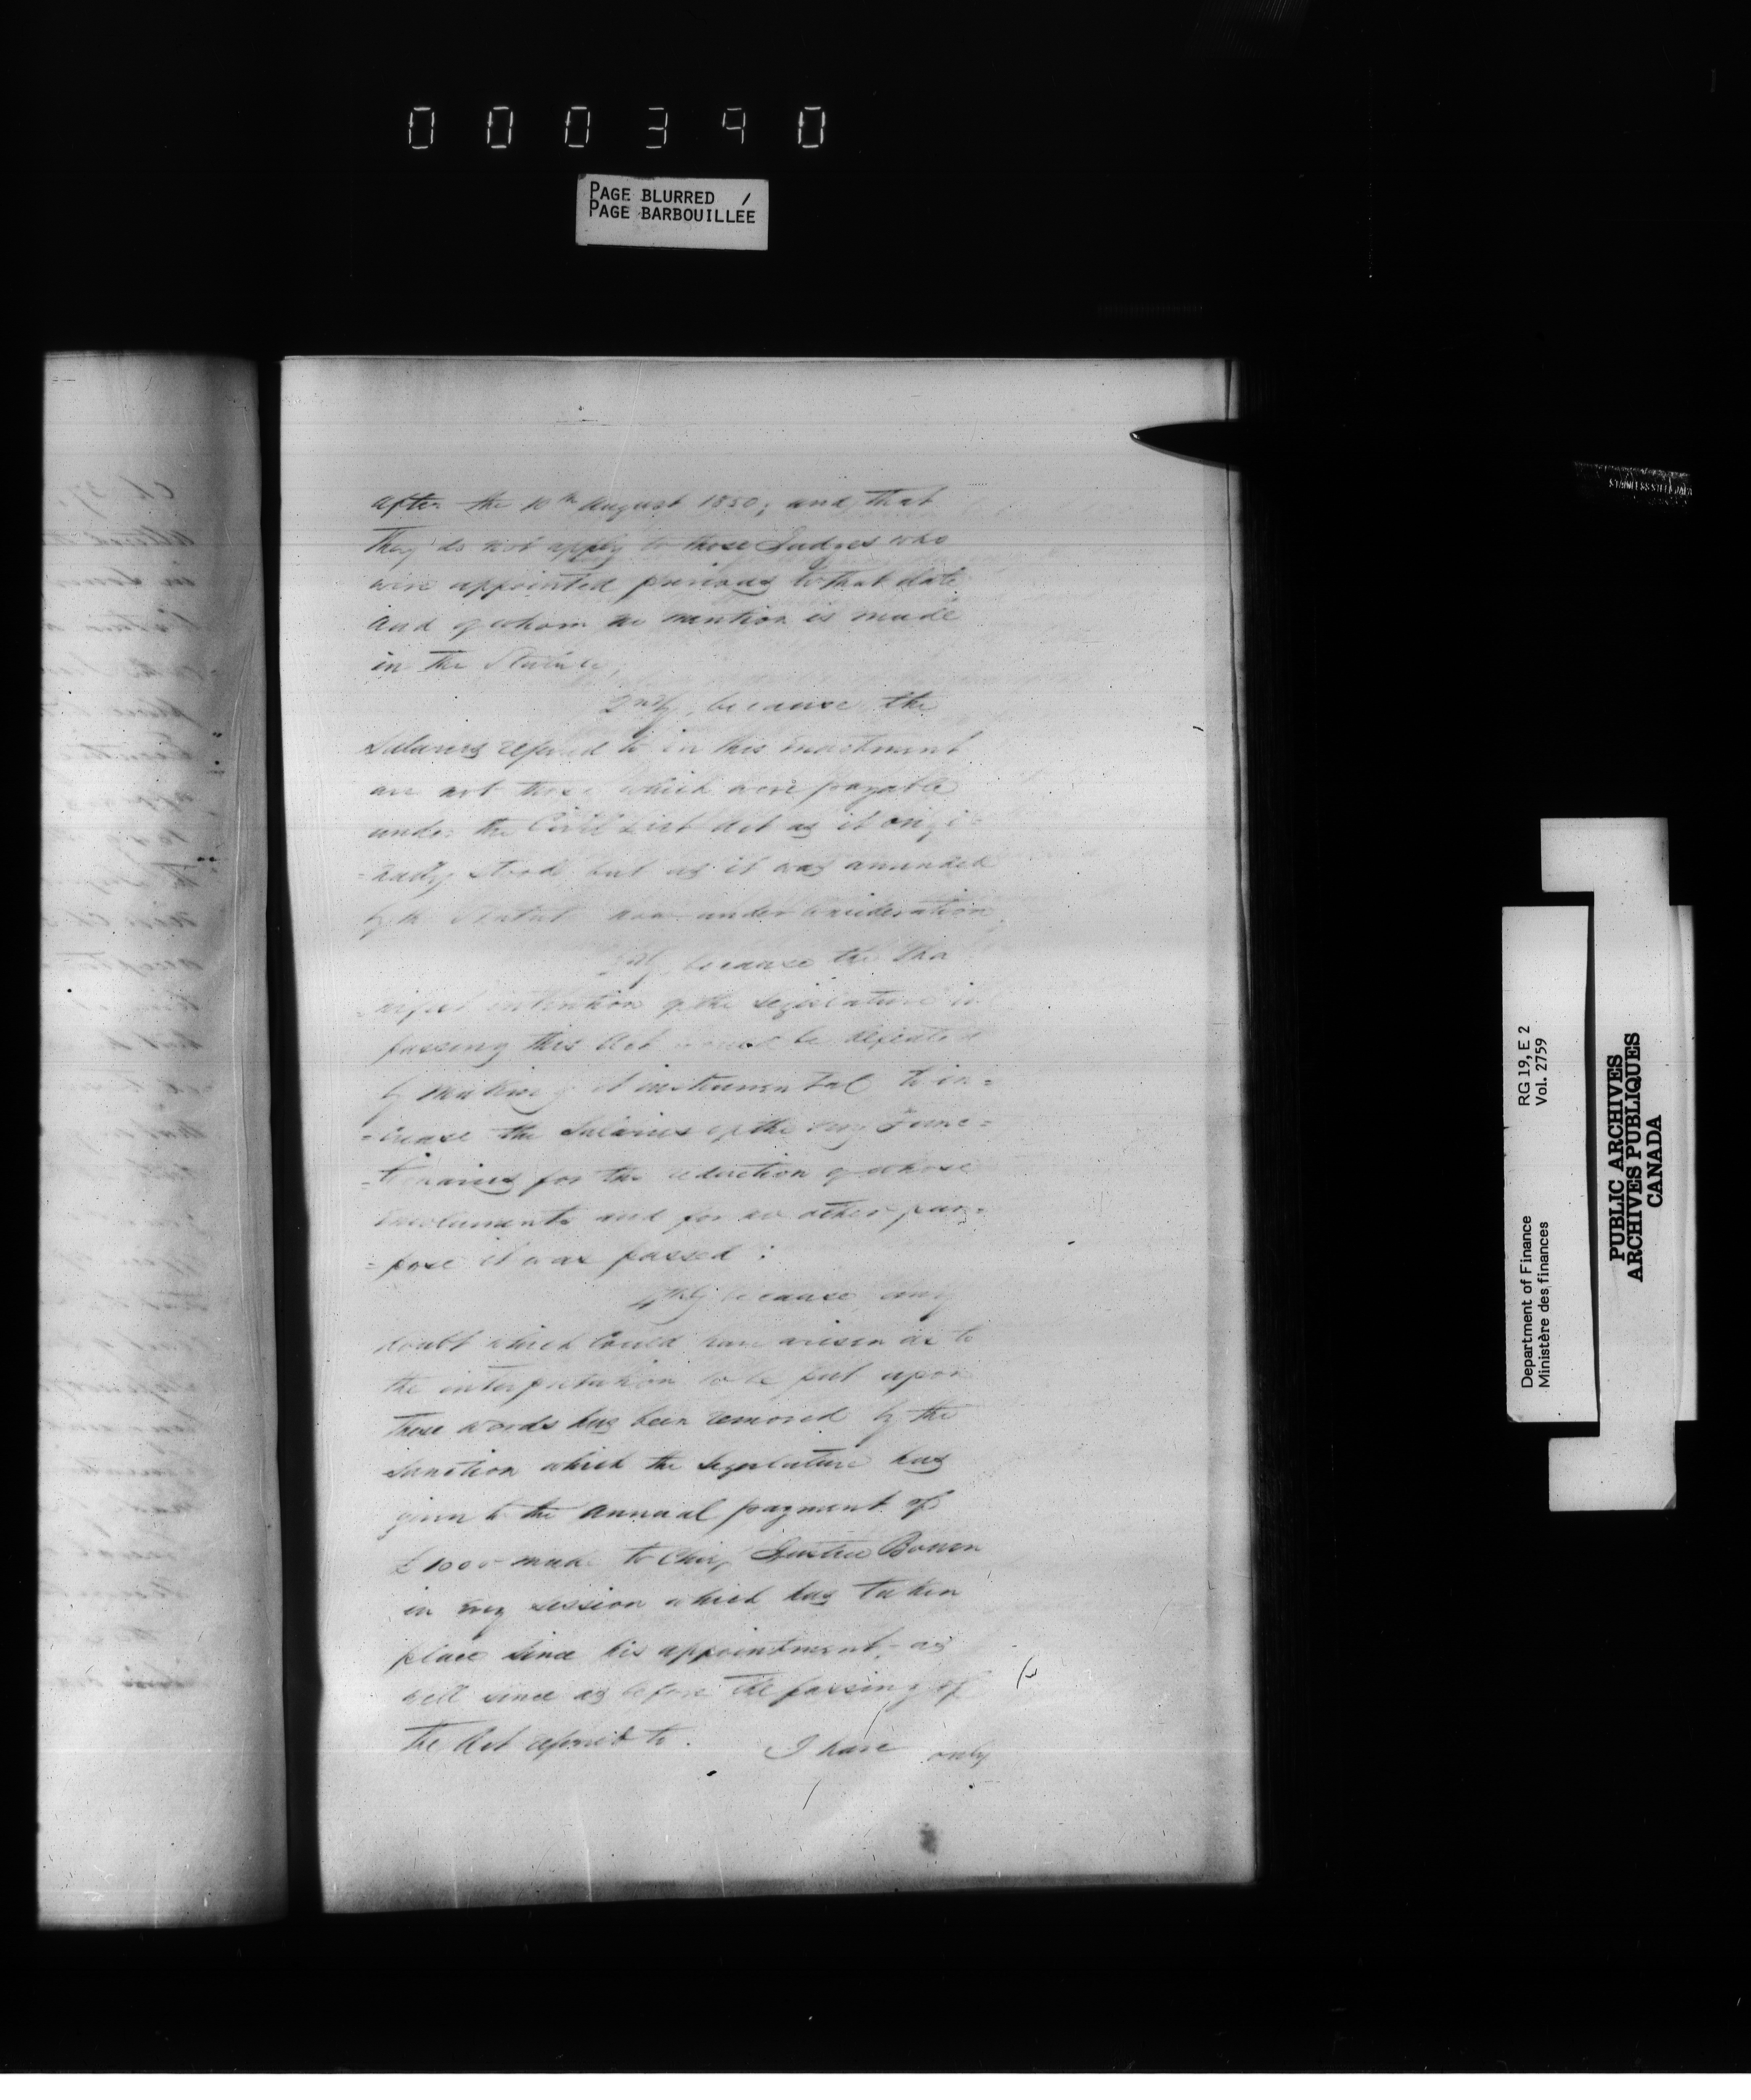 000390
PAGE BLURRED
PAGE BARBOUILLÉE
after the 10th August 1850; and that
they do not apply to those Judges who
were appointed previous to that date
and of whom no mention is made
in the
2ndly, because the
Salaries referred to in this enactment
are not those which were payable
under the Civil List Act as it origi=
=nally stood but as it was amended
by the Statute now under consideration
3rdly because the Ma
=nifest intention of the Legislature in
passing this Act would be defeated
by making it instrumental to in=
=crease the Salaries of the very Func=
=tionaries for the reduction of whose
emoluments and for no other pur=
=pose it was passed:
4thly because any
doubt which could have arisen as to
the interpretation to be put upon
these words has been removed by the
sanction which the Legislature has
given to the annual payment of
£1000 made to Chief Justice Bowen
in every session which has taken
place since his appointment, as
well since as before the passing of
the Act referred to. I have only
RG 19, E 2
Vol. 2759
Department of Finance
Ministère des finances
PUBLIC ARCHIVES
ARCHIVES PUBLIQUES
CANADA